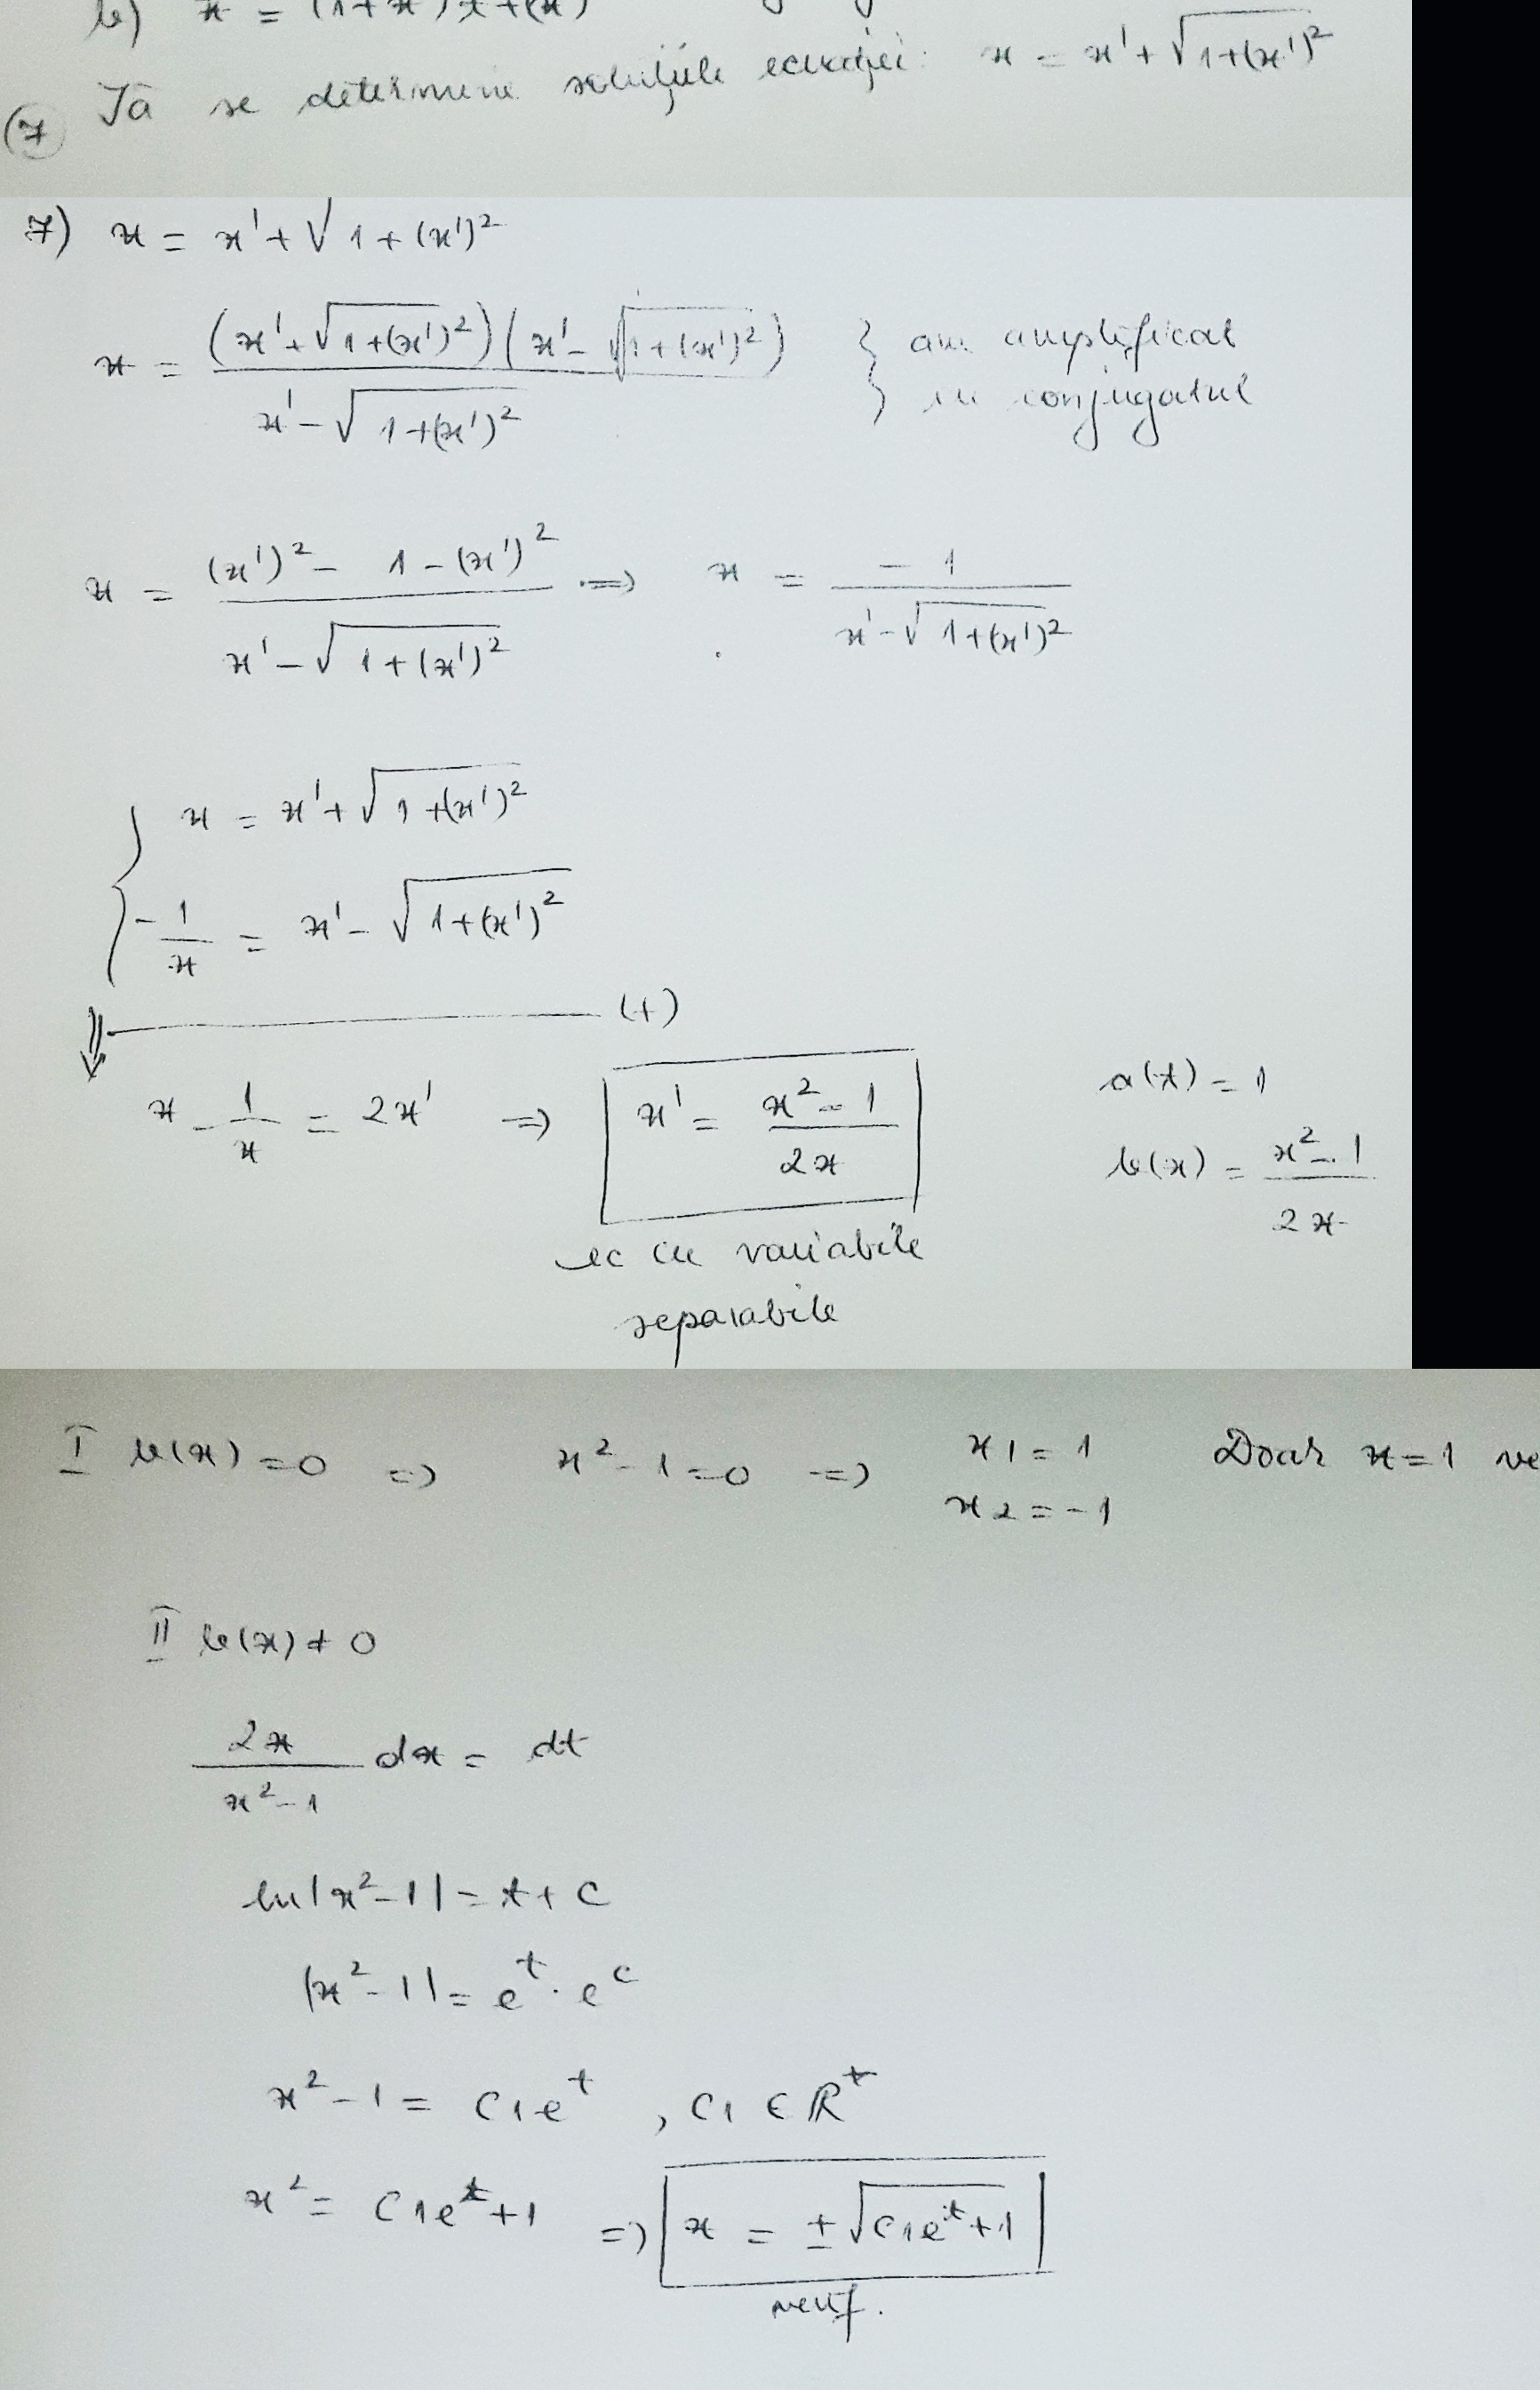 b) x = (1+x')t+(x')
7 Să se determine soluțiile ecuației: x = x'+√(1+(x')²)
7) x = x'+√(1+(x')²)
x = (x'+√(1+(x')²))(x'-√(1+(x')²)) / (x'-√(1+(x')²)) } am amplificat
cu conjugatul
x = ((x')²-1-(x')²) / (x'-√(1+(x')²)) => x = -1 / (x'-√(1+(x')²))
{ x = x'+√(1+(x')²)
-1/x = x'-√(1+(x')²)
(+)
x - 1/x = 2x' => x' = (x²-1)/2x
a(t) = 1
b(x) = (x²-1)/2x
ec cu variabile
separabile
I b(x)=0 => x²-1=0 => x1=1 Doar x=1 ve
x2=-1
II b(x)≠0
2x/(x²-1) dx = dt
ln|x²-1| = t+c
|x²-1| = e^t·e^c
x²-1 = c1e^t , c1 ∈ ℝ*
x² = c1e^t+1 => x = ±√(c1e^t+1)
verif.